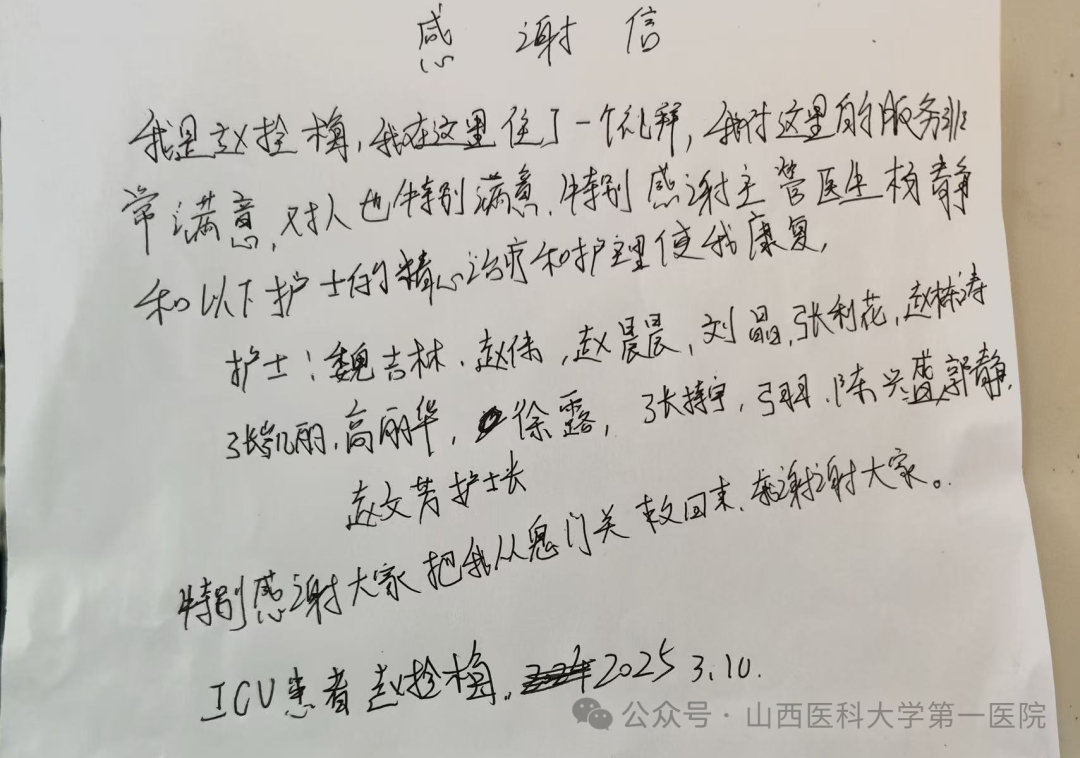 感谢信
我是赵拴梅,我在这里住了一个礼拜,我对这里的服务非
常满意,对人也特别满意.特别感谢主管医生杨静
和以下护士的精心治疗和护理使我康复,
护士:魏吉林.赵伟,赵晨晨,刘晶,张利花,赵栋涛
张凯丽.高丽华,徐露,张持宇,弓羽.陈兴盛,郭静.
赵文芳护士长
特别感谢大家把我从鬼门关救回来.谢谢大家。
ICU患者赵拴梅.2025 3.10.
公众号·山西医科大学第一医院